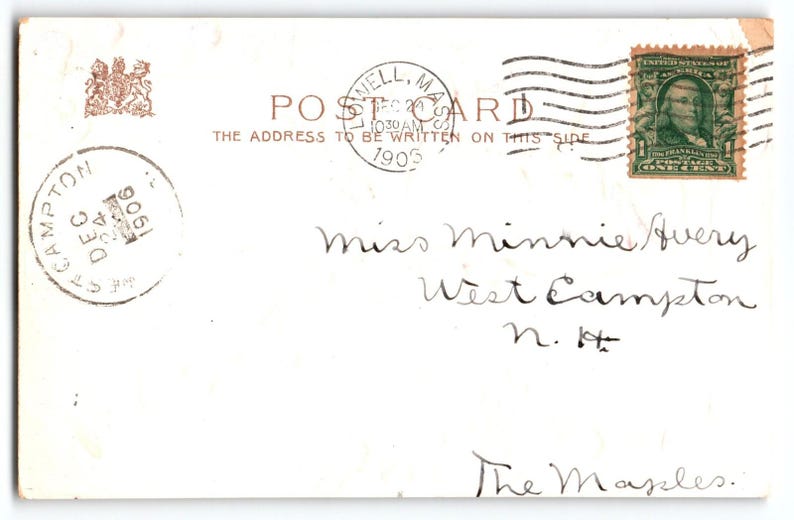 POST CARD
THE ADDRESS TO BE WRITTEN ON THIS SIDE
LOWELL, MASS.
DEC 24
10 30 AM
1906
UNITED STATES OF
AMERICA
1 1
1706 FRANKLIN 1790
POSTAGE
ONE CENT
WEST CAMPTON
DEC
24
1906
Miss Minnie Avery
West Campton
N. H.
The Maples.